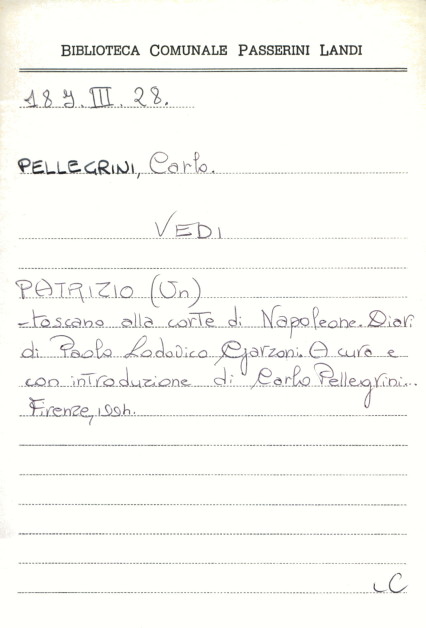 BIBLIOTECA COMUNALE PASSERINI LANDI
187.III.28.
PELLEGRINI, Carlo.
VEDI
PATRIZIO (Un)
-toscano alla corte di Napoleone. Diari
di Paolo Lodovico Garzoni. A cura e
con introduzione di Carlo Pellegrini..
Firenze,
LC